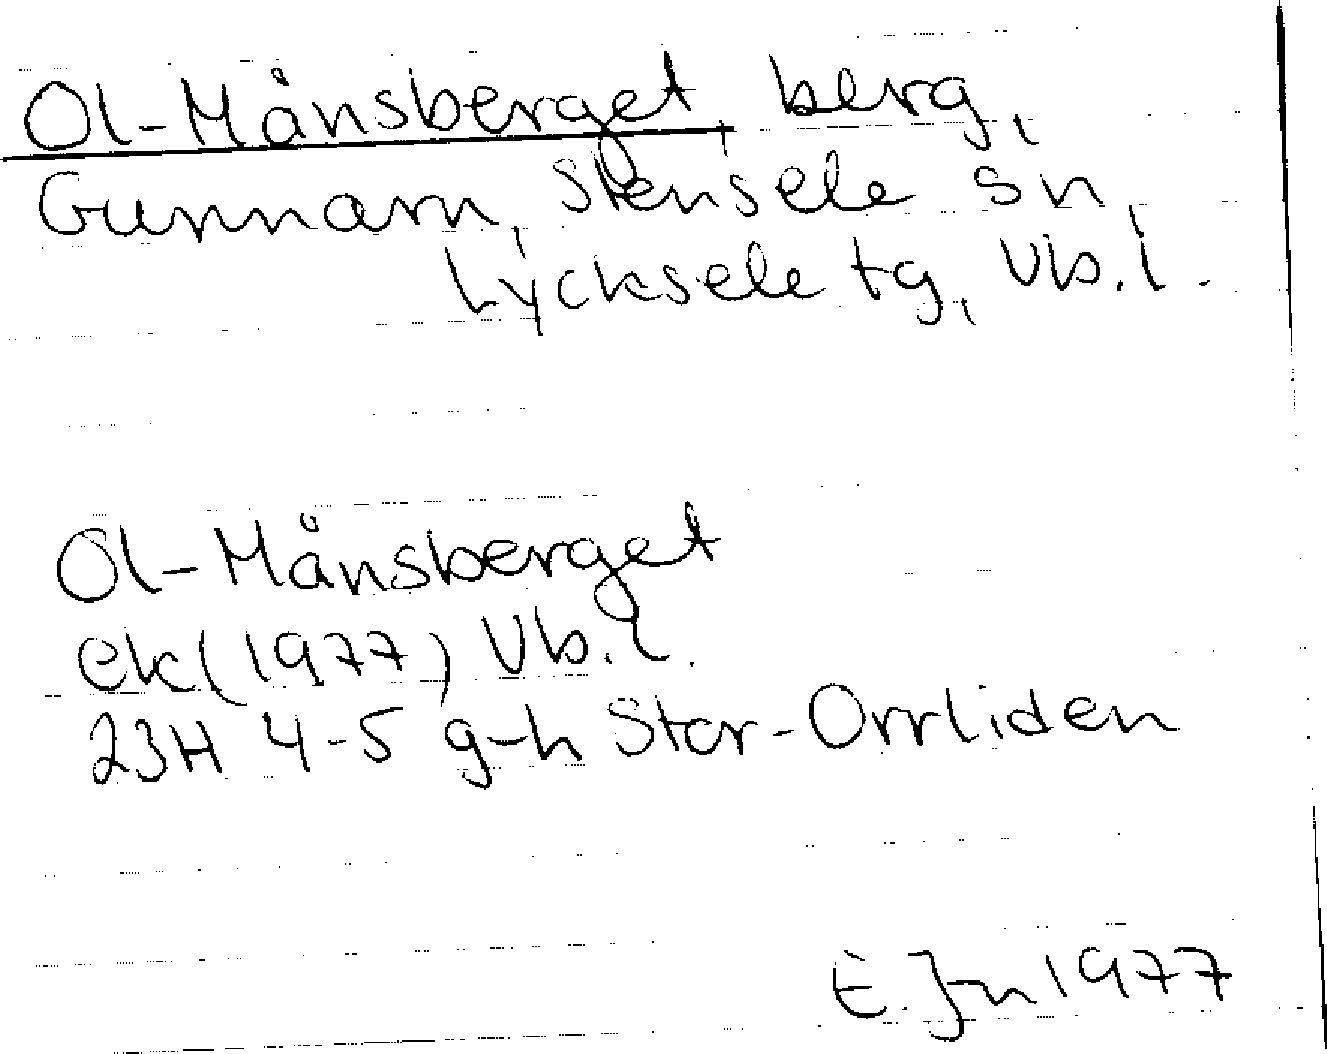 Ol-Månsberget, berg,
Gunnarn, Stensele sn,
Lycksele tg, Vb.l.
Ol-Månsberget
ek(1977) Vb.l.
23H 4-5 g-h Stor-Orrliden
E.Jn 1977